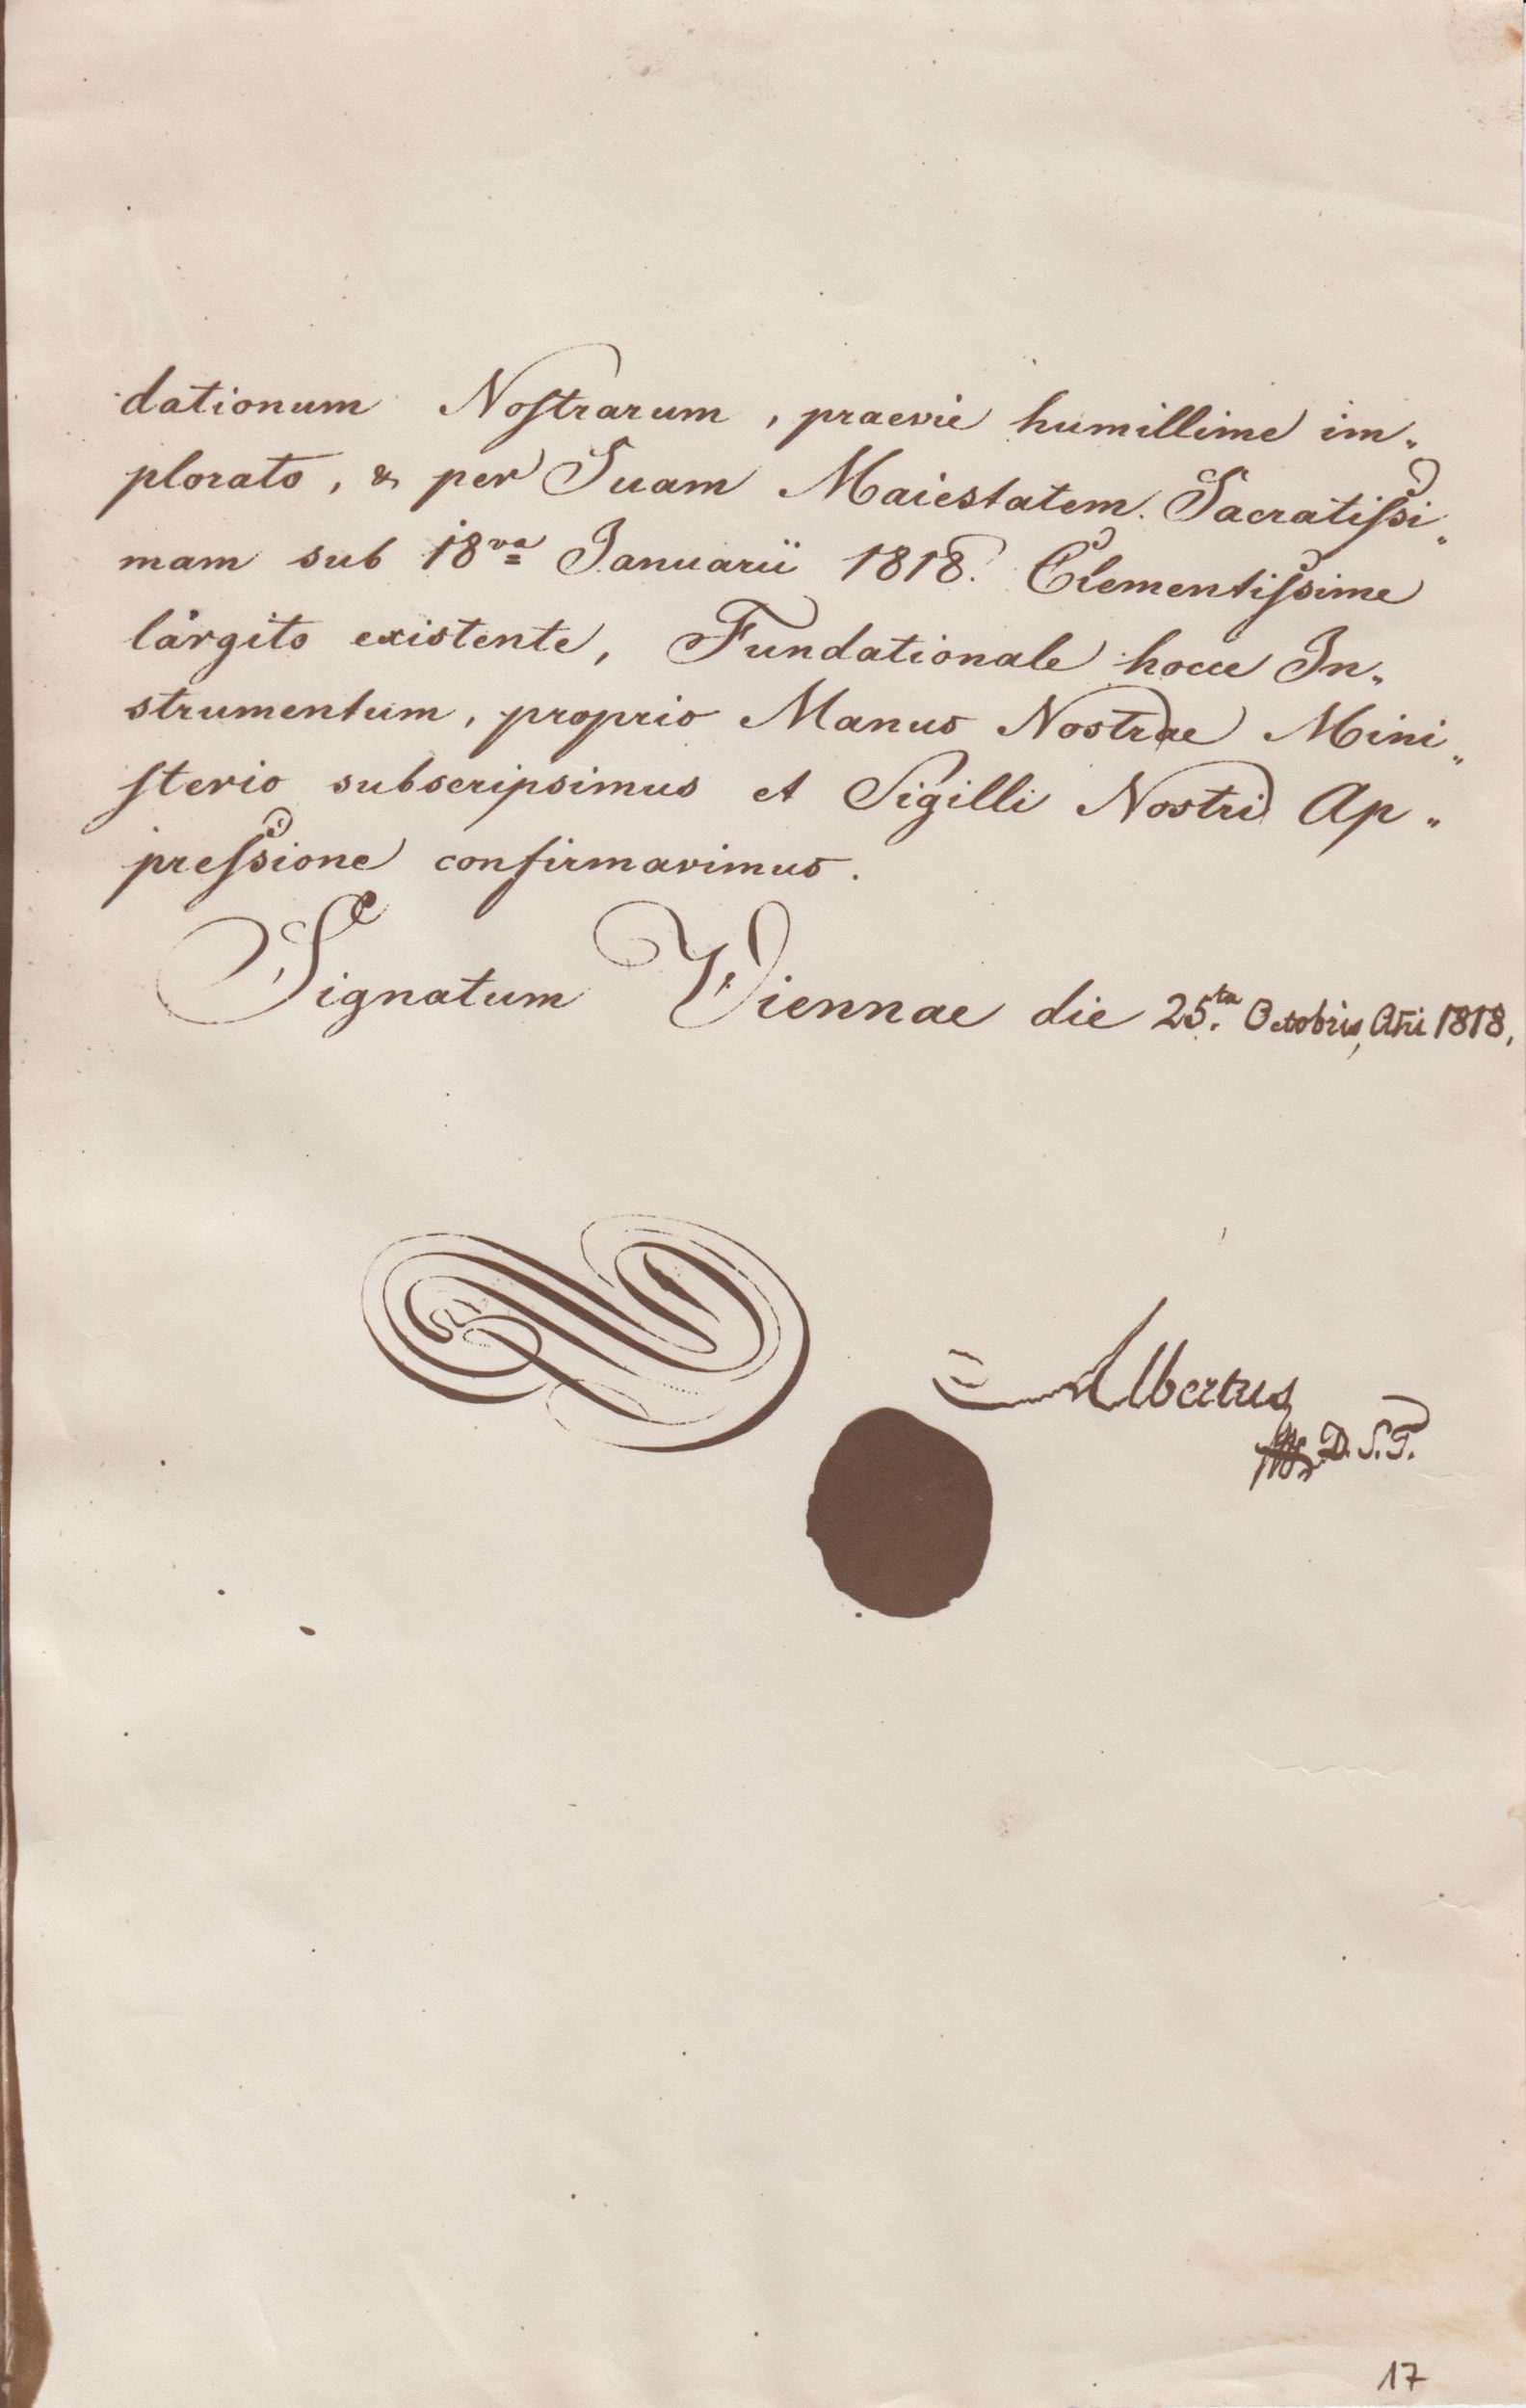 dationum Nostrarum, praevie humillime im„
plorato, & per Suam Maiestatem Sacratissi„
mam sub 18va Ianuarii 1818. Clementissime
largito existente, Fundationale hocce In„
strumentum, proprio Manus Nostrae Mini„
sterio subscripsimus et Sigilli Nostri Ap„
pressione confirmavimus.
Signatum Viennae die 25.ta Octobris, Añi 1818.
Albertus
D. S. T.
17